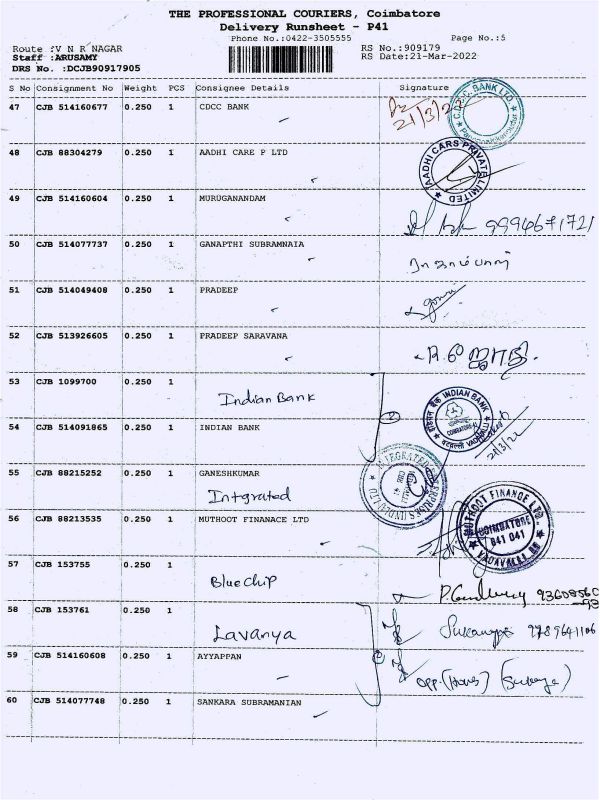 THE PROFESSIONAL COURIERS, Coimbatore
Delivery Runsheet - P41
Phone No.:0422-3505555 Page No.:5
Route :V N R NAGAR RS No.:909179
Staff :ARUSAMY RS Date:21-Mar-2022
DRS No. :DCJB90917905
S No Consignment No Weight PCS Consignee Details Signature
47 CJB 514160677 0.250 1 CDCC BANK
21/3/22
C.D.C.C. BANK LTD.
48 CJB 88304279 0.250 1 AADHI CARE P LTD
AADHI CARS PRIVATE LIMITED
49 CJB 514160604 0.250 1 MURUGANANDAM
9994671721
50 CJB 514077737 0.250 1 GANAPTHI SUBRAMNAIA
51 CJB 514049408 0.250 1 PRADEEP
52 CJB 513926605 0.250 1 PRADEEP SARAVANA
53 CJB 1099700 0.250 1
Indian Bank
INDIAN BANK
54 CJB 514091865 0.250 1 INDIAN BANK
21/3/22
55 CJB 88215252 0.250 1 GANESHKUMAR
Intgrated
56 CJB 88213535 0.250 1 MUTHOOT FINANACE LTD
MUTHOOT FINANCE LTD.
COIMBATORE
641 041
VADAVALLI BR
57 CJB 153755 0.250 1
Bluechip
58 CJB 153761 0.250 1
Lavanya
Sukanya 9789641106
59 CJB 514160608 0.250 1 AYYAPPAN
60 CJB 514077748 0.250 1 SANKARA SUBRAMANIAN